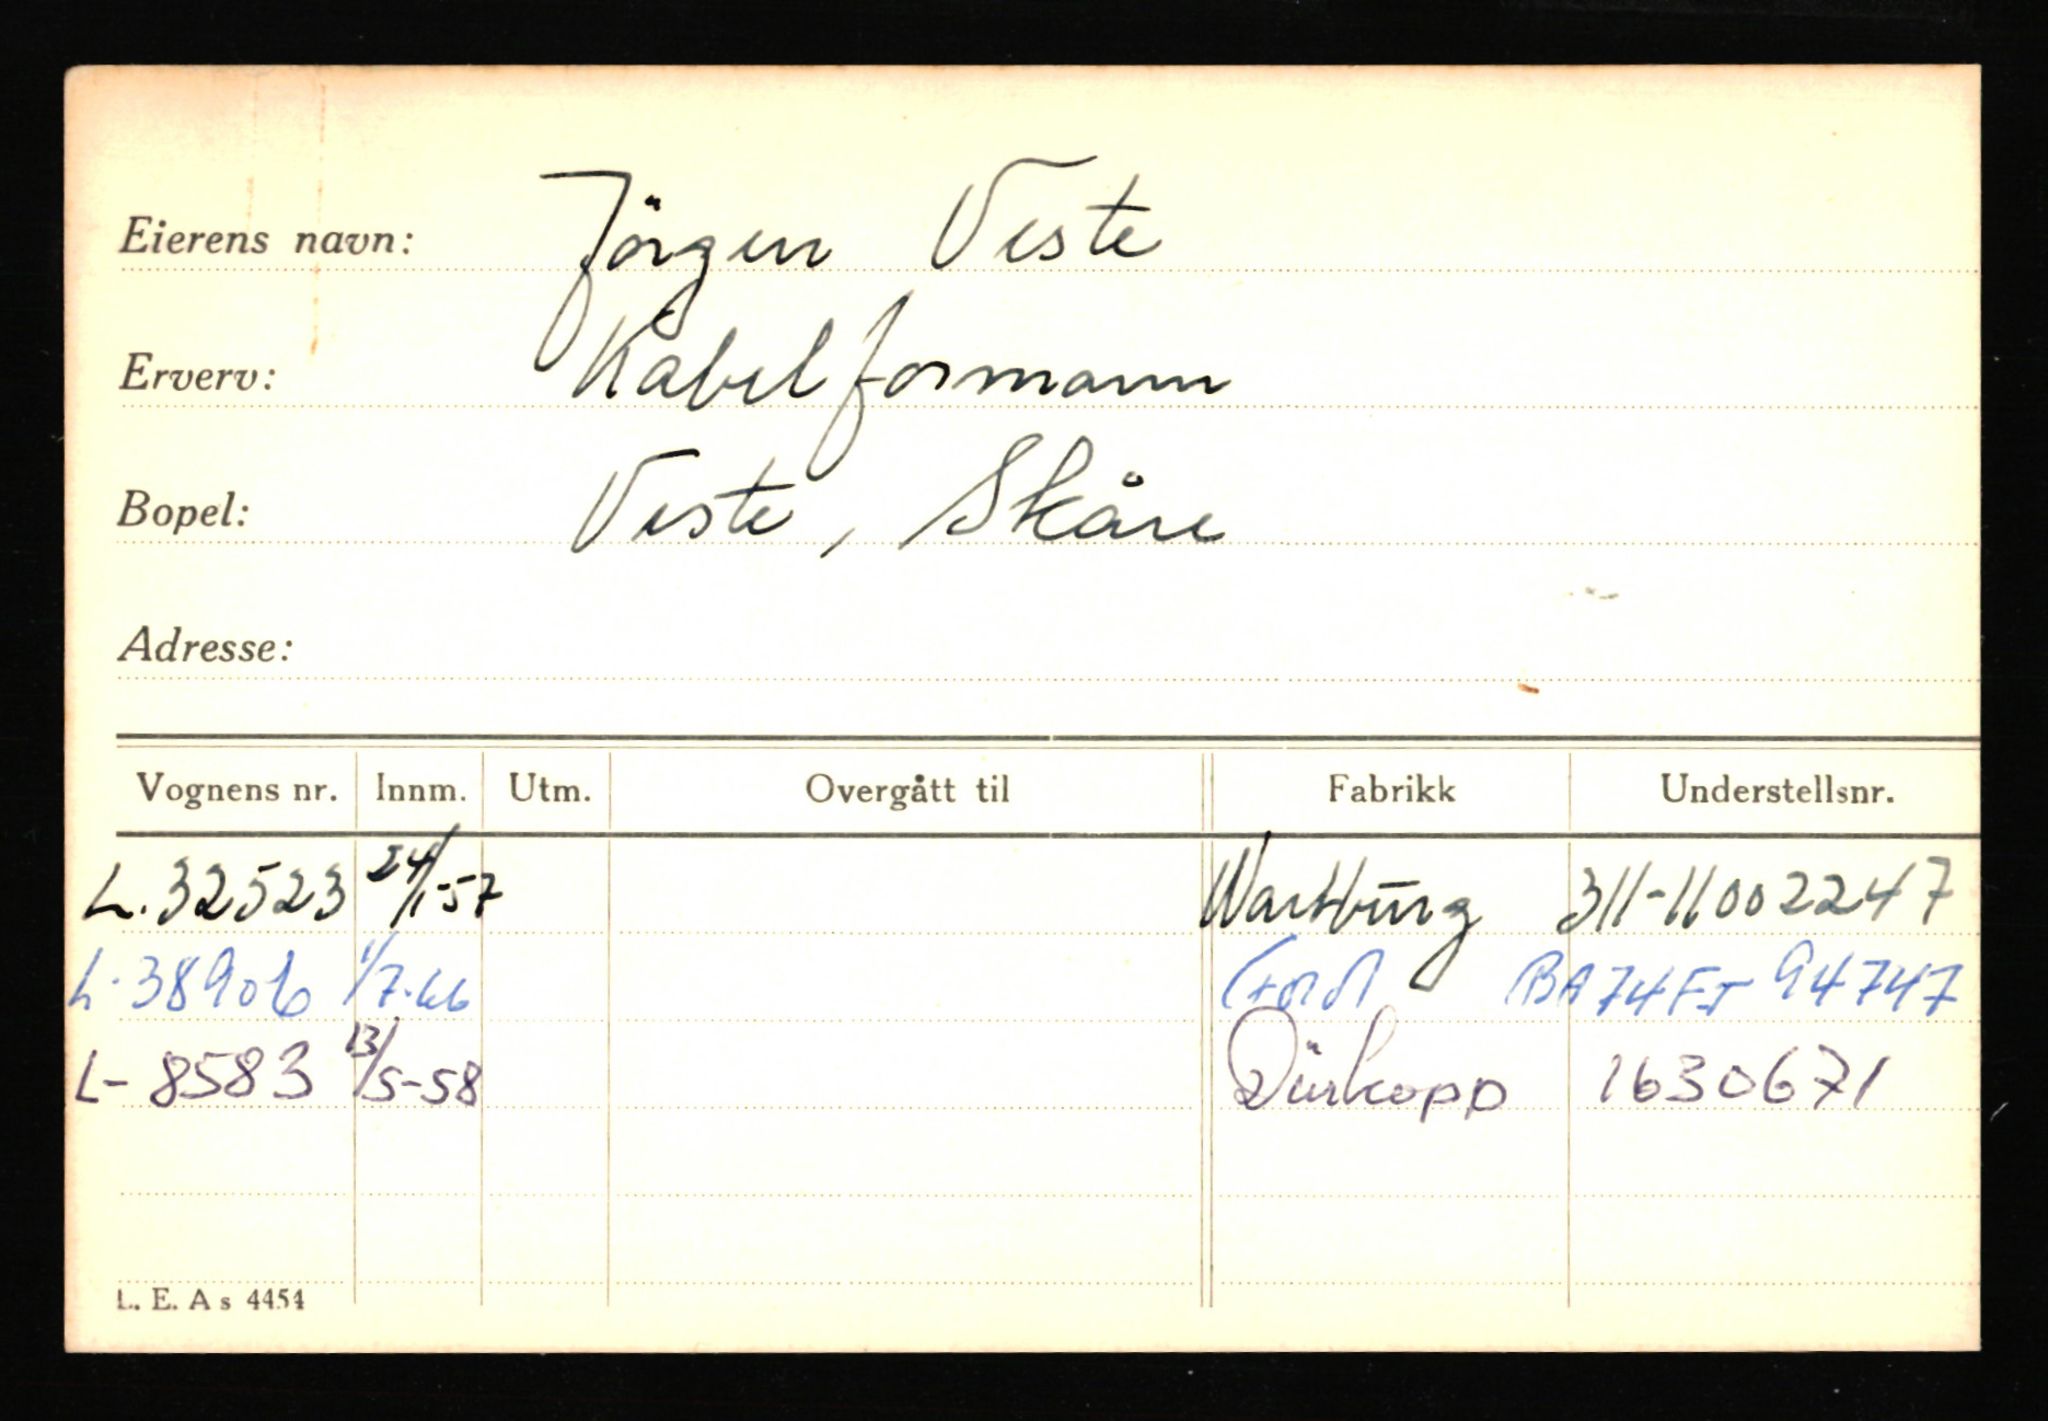 Eierens navn: Jörgen Veste
Erverv: Kabelformann
Bopel: Veste, Skåre
Adresse:
Vognens nr. Innm. Utm. Overgått til Fabrikk Understellsnr.
L. 32523 24/1-57 Wartburg 311-11002247
L. 38906 1/7.66 Ford BA74FJ 94747
L- 8583 13/5-58 Dürkopp 1630671
L. E. A s 4454